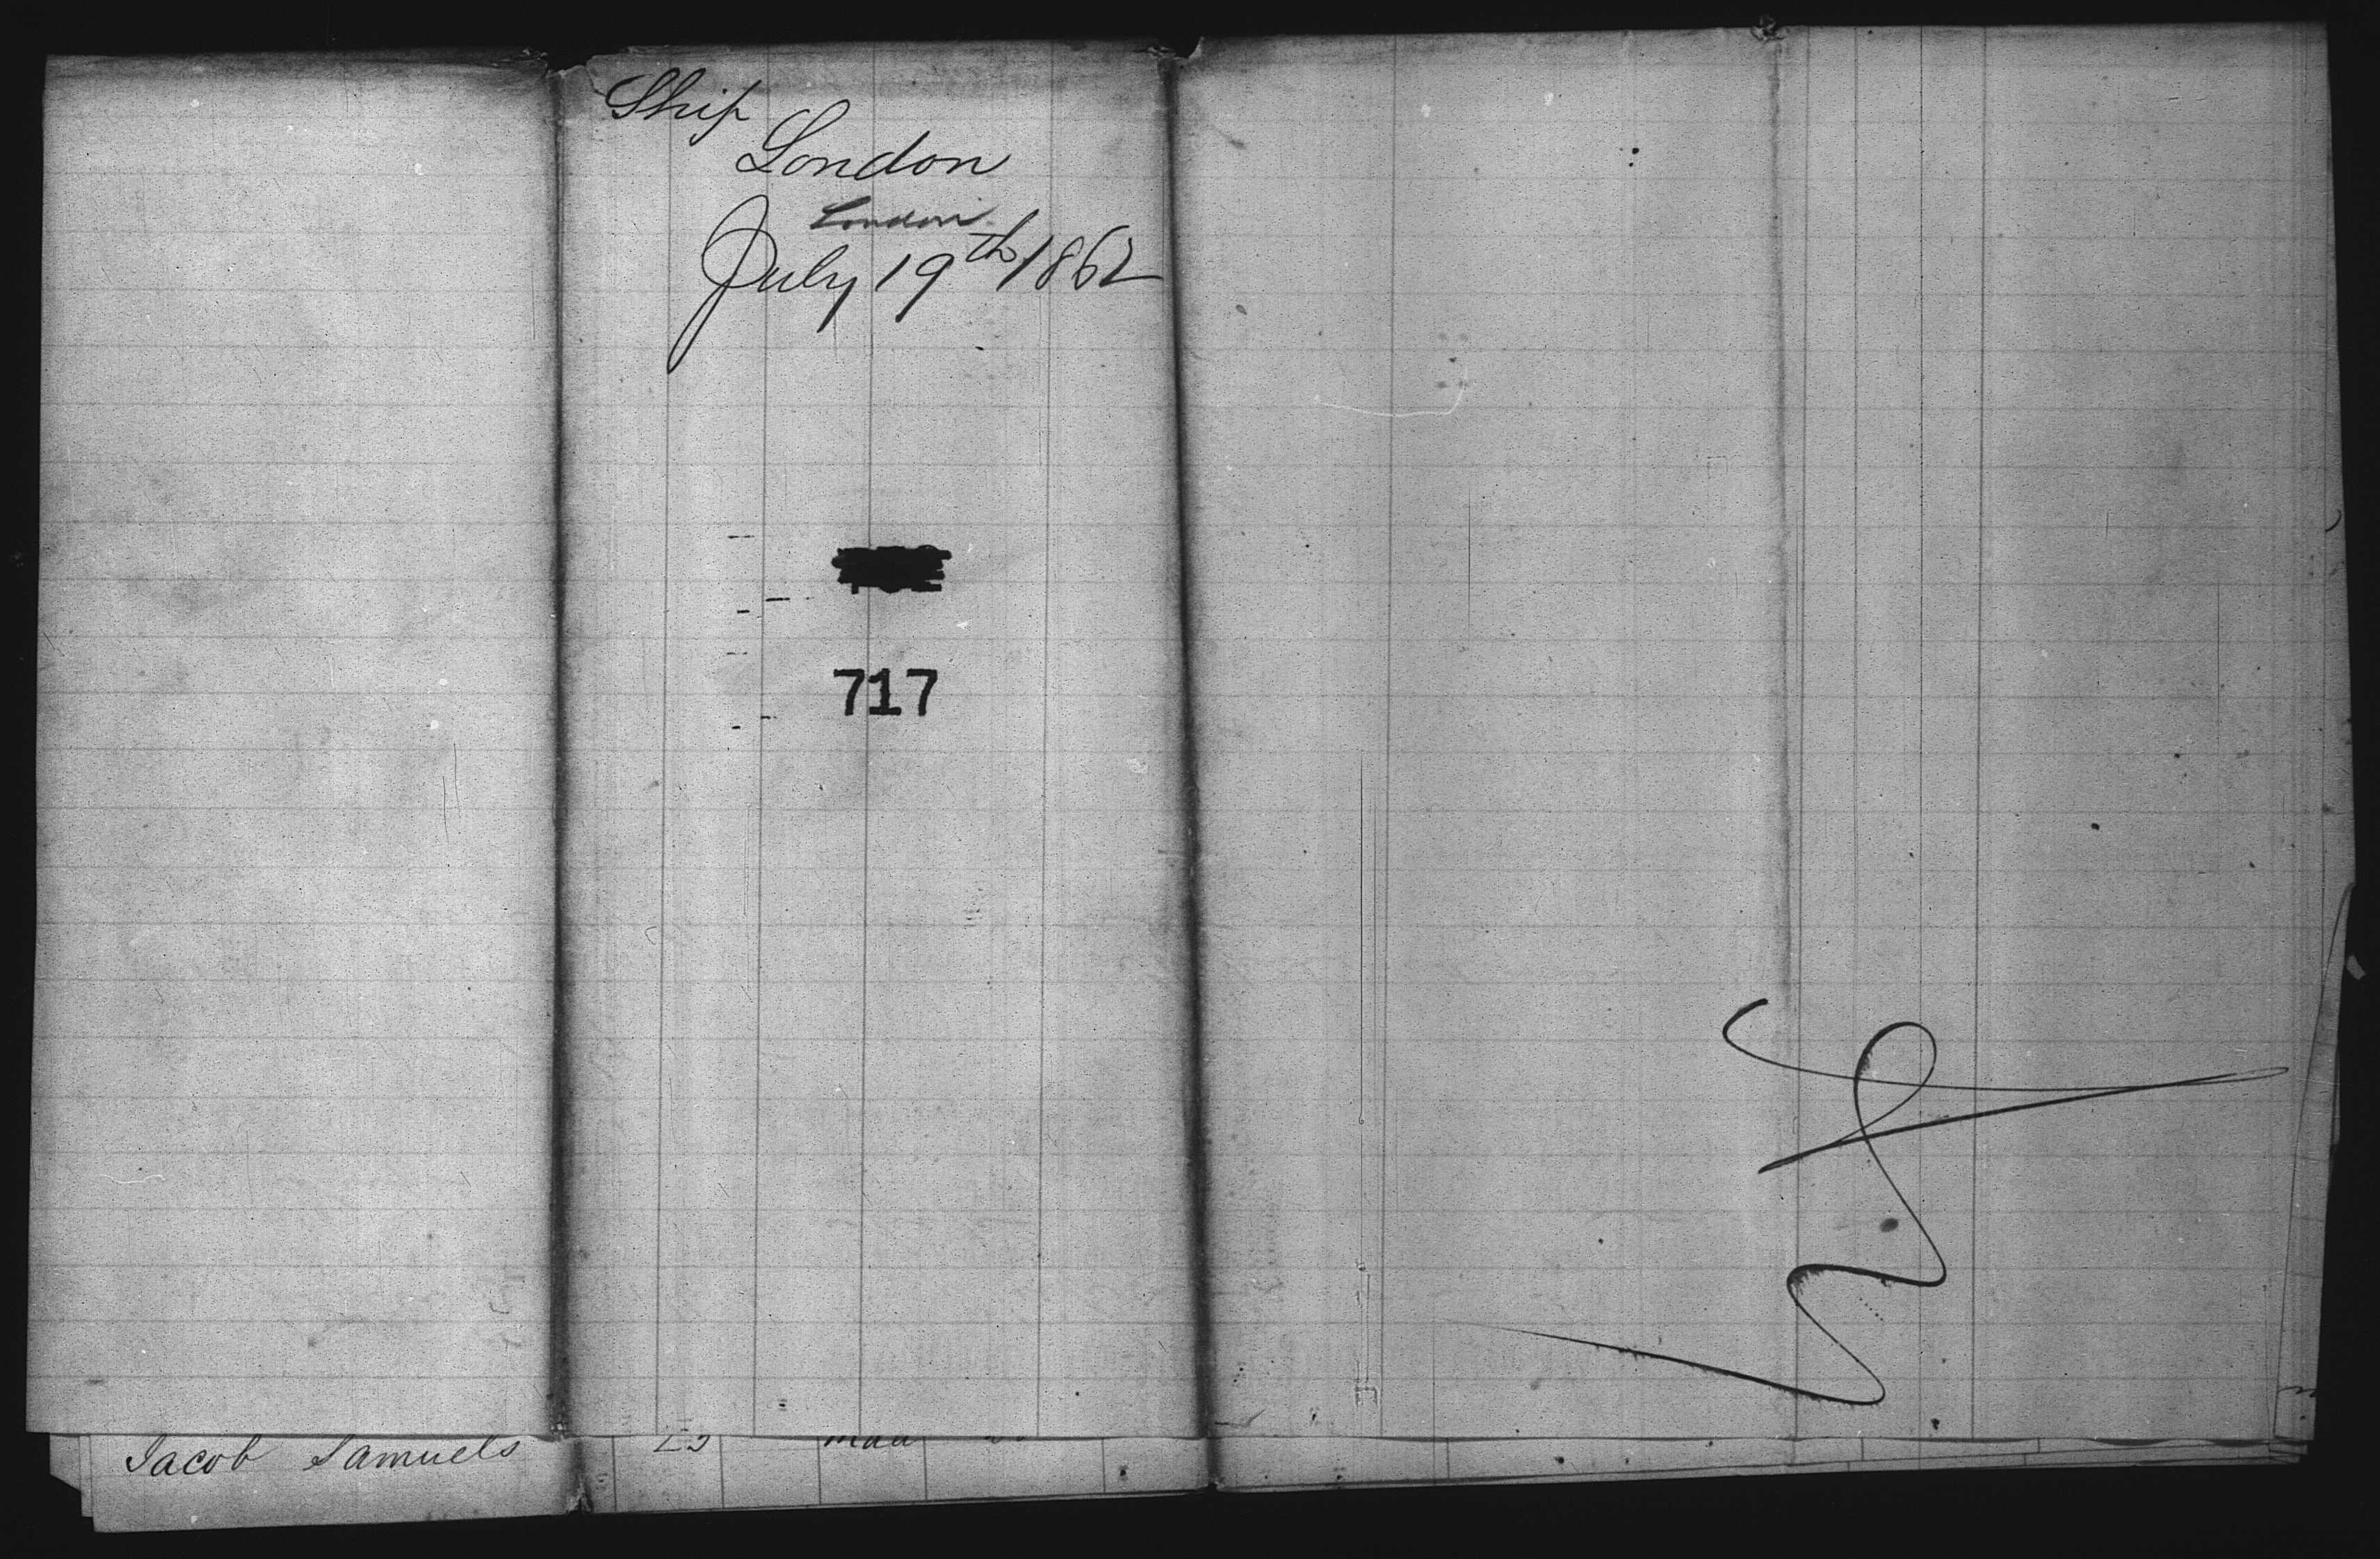 Ship
London
London
July 19th 1862
717
Jacob Samuels